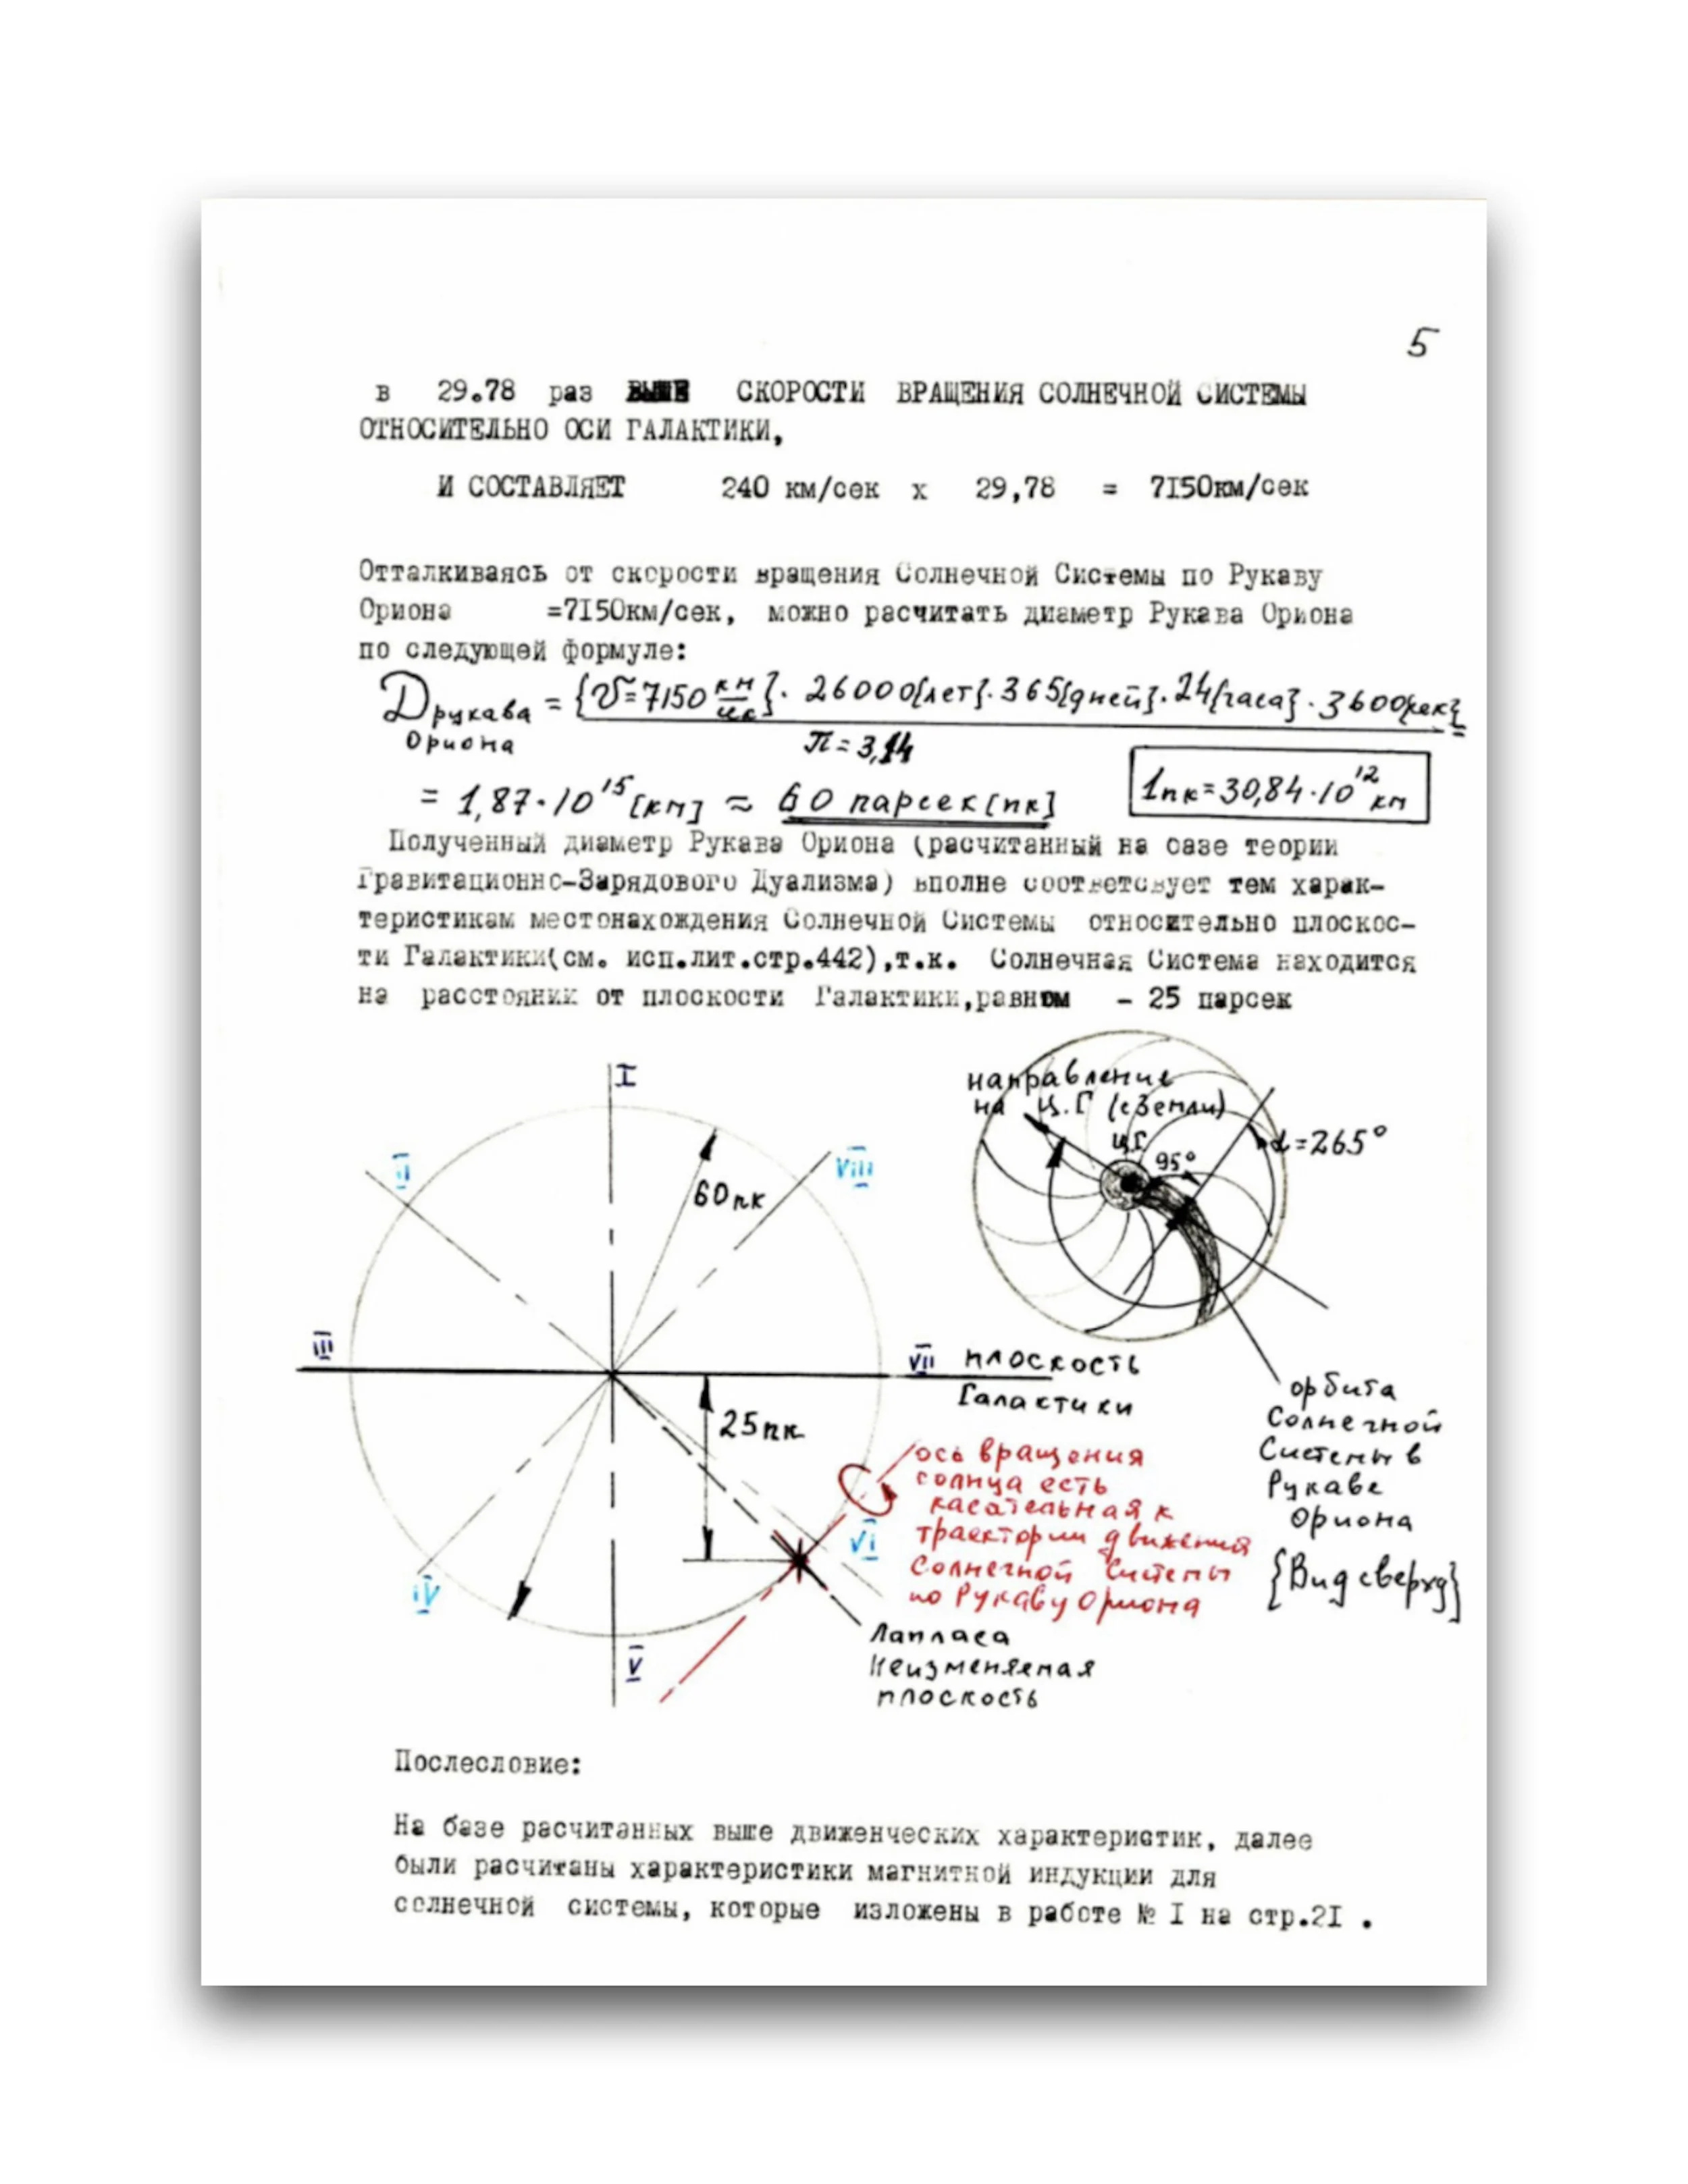 5
в 29.78 раз ВЫШЕ СКОРОСТИ ВРАЩЕНИЯ СОЛНЕЧНОЙ СИСТЕМЫ
ОТНОСИТЕЛЬНО ОСИ ГАЛАКТИКИ,
И СОСТАВЛЯЕТ 240 км/сек x 29,78 = 7I50км/сек
Отталкиваясь от скорости вращения Солнечной Системы по Рукаву
Ориона =7I50км/сек, можно расчитать диаметр Рукава Ориона
по следующей формуле:
Д рукава Ориона = {V=7150 км/сек}· 26000{лет}·365{дней}·24{часа}·3600{сек}
π=3,14
= 1,87·10¹⁵[км] ≈ 60 парсек[пк]
1пк=30,84·10¹² км
Полученный диаметр Рукава Ориона (расчитанный на базе теории
Гравитационно-Зарядового Дуализма) вполне соответсвует тем харак-
теристикам местонахождения Солнечной Системы относительно плоскос-
ти Галактики(см. исп.лит.стр.442),т.к. Солнечная Система находится
на расстоянии от плоскости Галактики,равном - 25 парсек
I
II
III
IV
V
VI
VII
VIII
60пк
25пк
направление
на Ц.Г (с Земли)
ЦГ
95°
α=265°
плоскость
Галактики
ось вращения
солнца есть
касательная к
траектории движения
Солнечной Системы
по Рукаву Ориона
Лапласа
Неизменяемая
плоскость
орбита
Солнечной
Системы в
Рукаве
Ориона
{Вид сверху}
Послесловие:
На базе расчитанных выше движенческих характеристик, далее
были расчитаны характеристики магнитной индукции для
солнечной системы, которые изложены в работе № I на стр.2I .